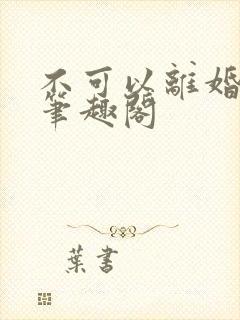 不可以離婚
筆趣閣
葉書